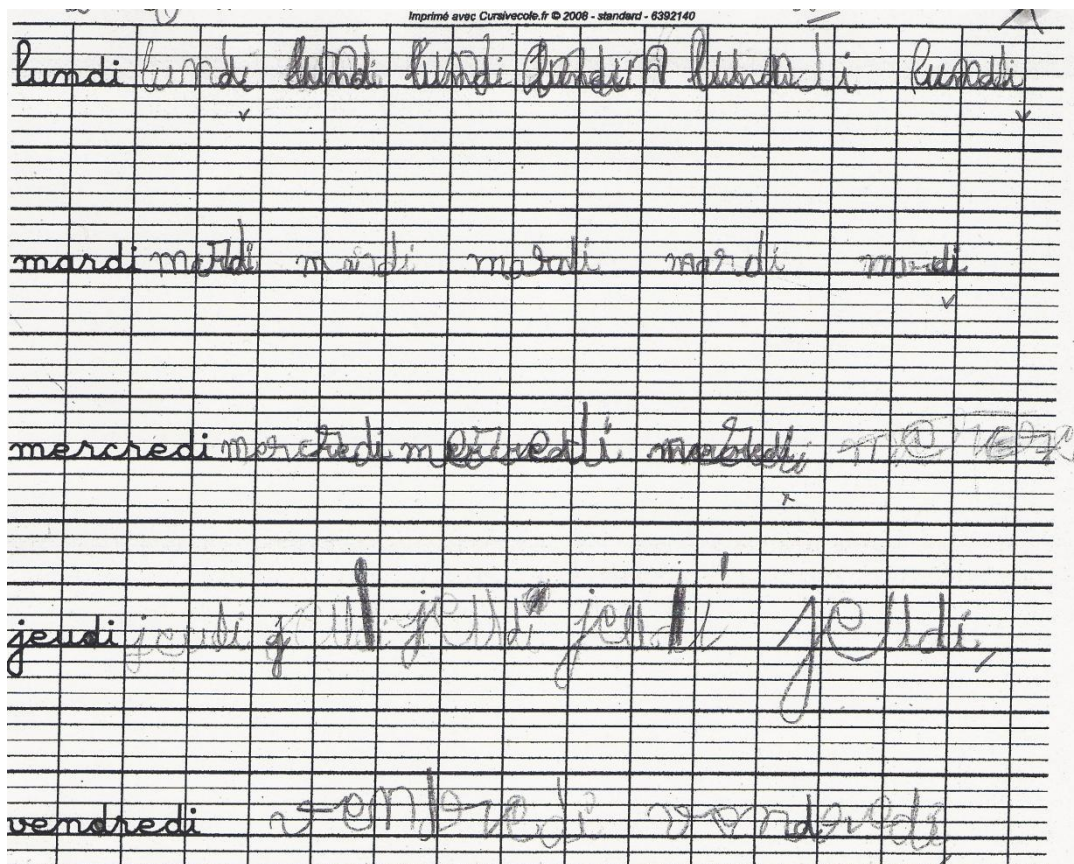 Imprimé avec Cursivecole.fr © 2008 - standard - 6392140
lundi lundi lundi lundi lundi lundi lundi
mardi mardi mardi mardi mardi mardi
mercredi mercredi mercredi mercredi
jeudi jeudi jeudi jeudi jeudi jeudi
vendredi vendredi vendredi